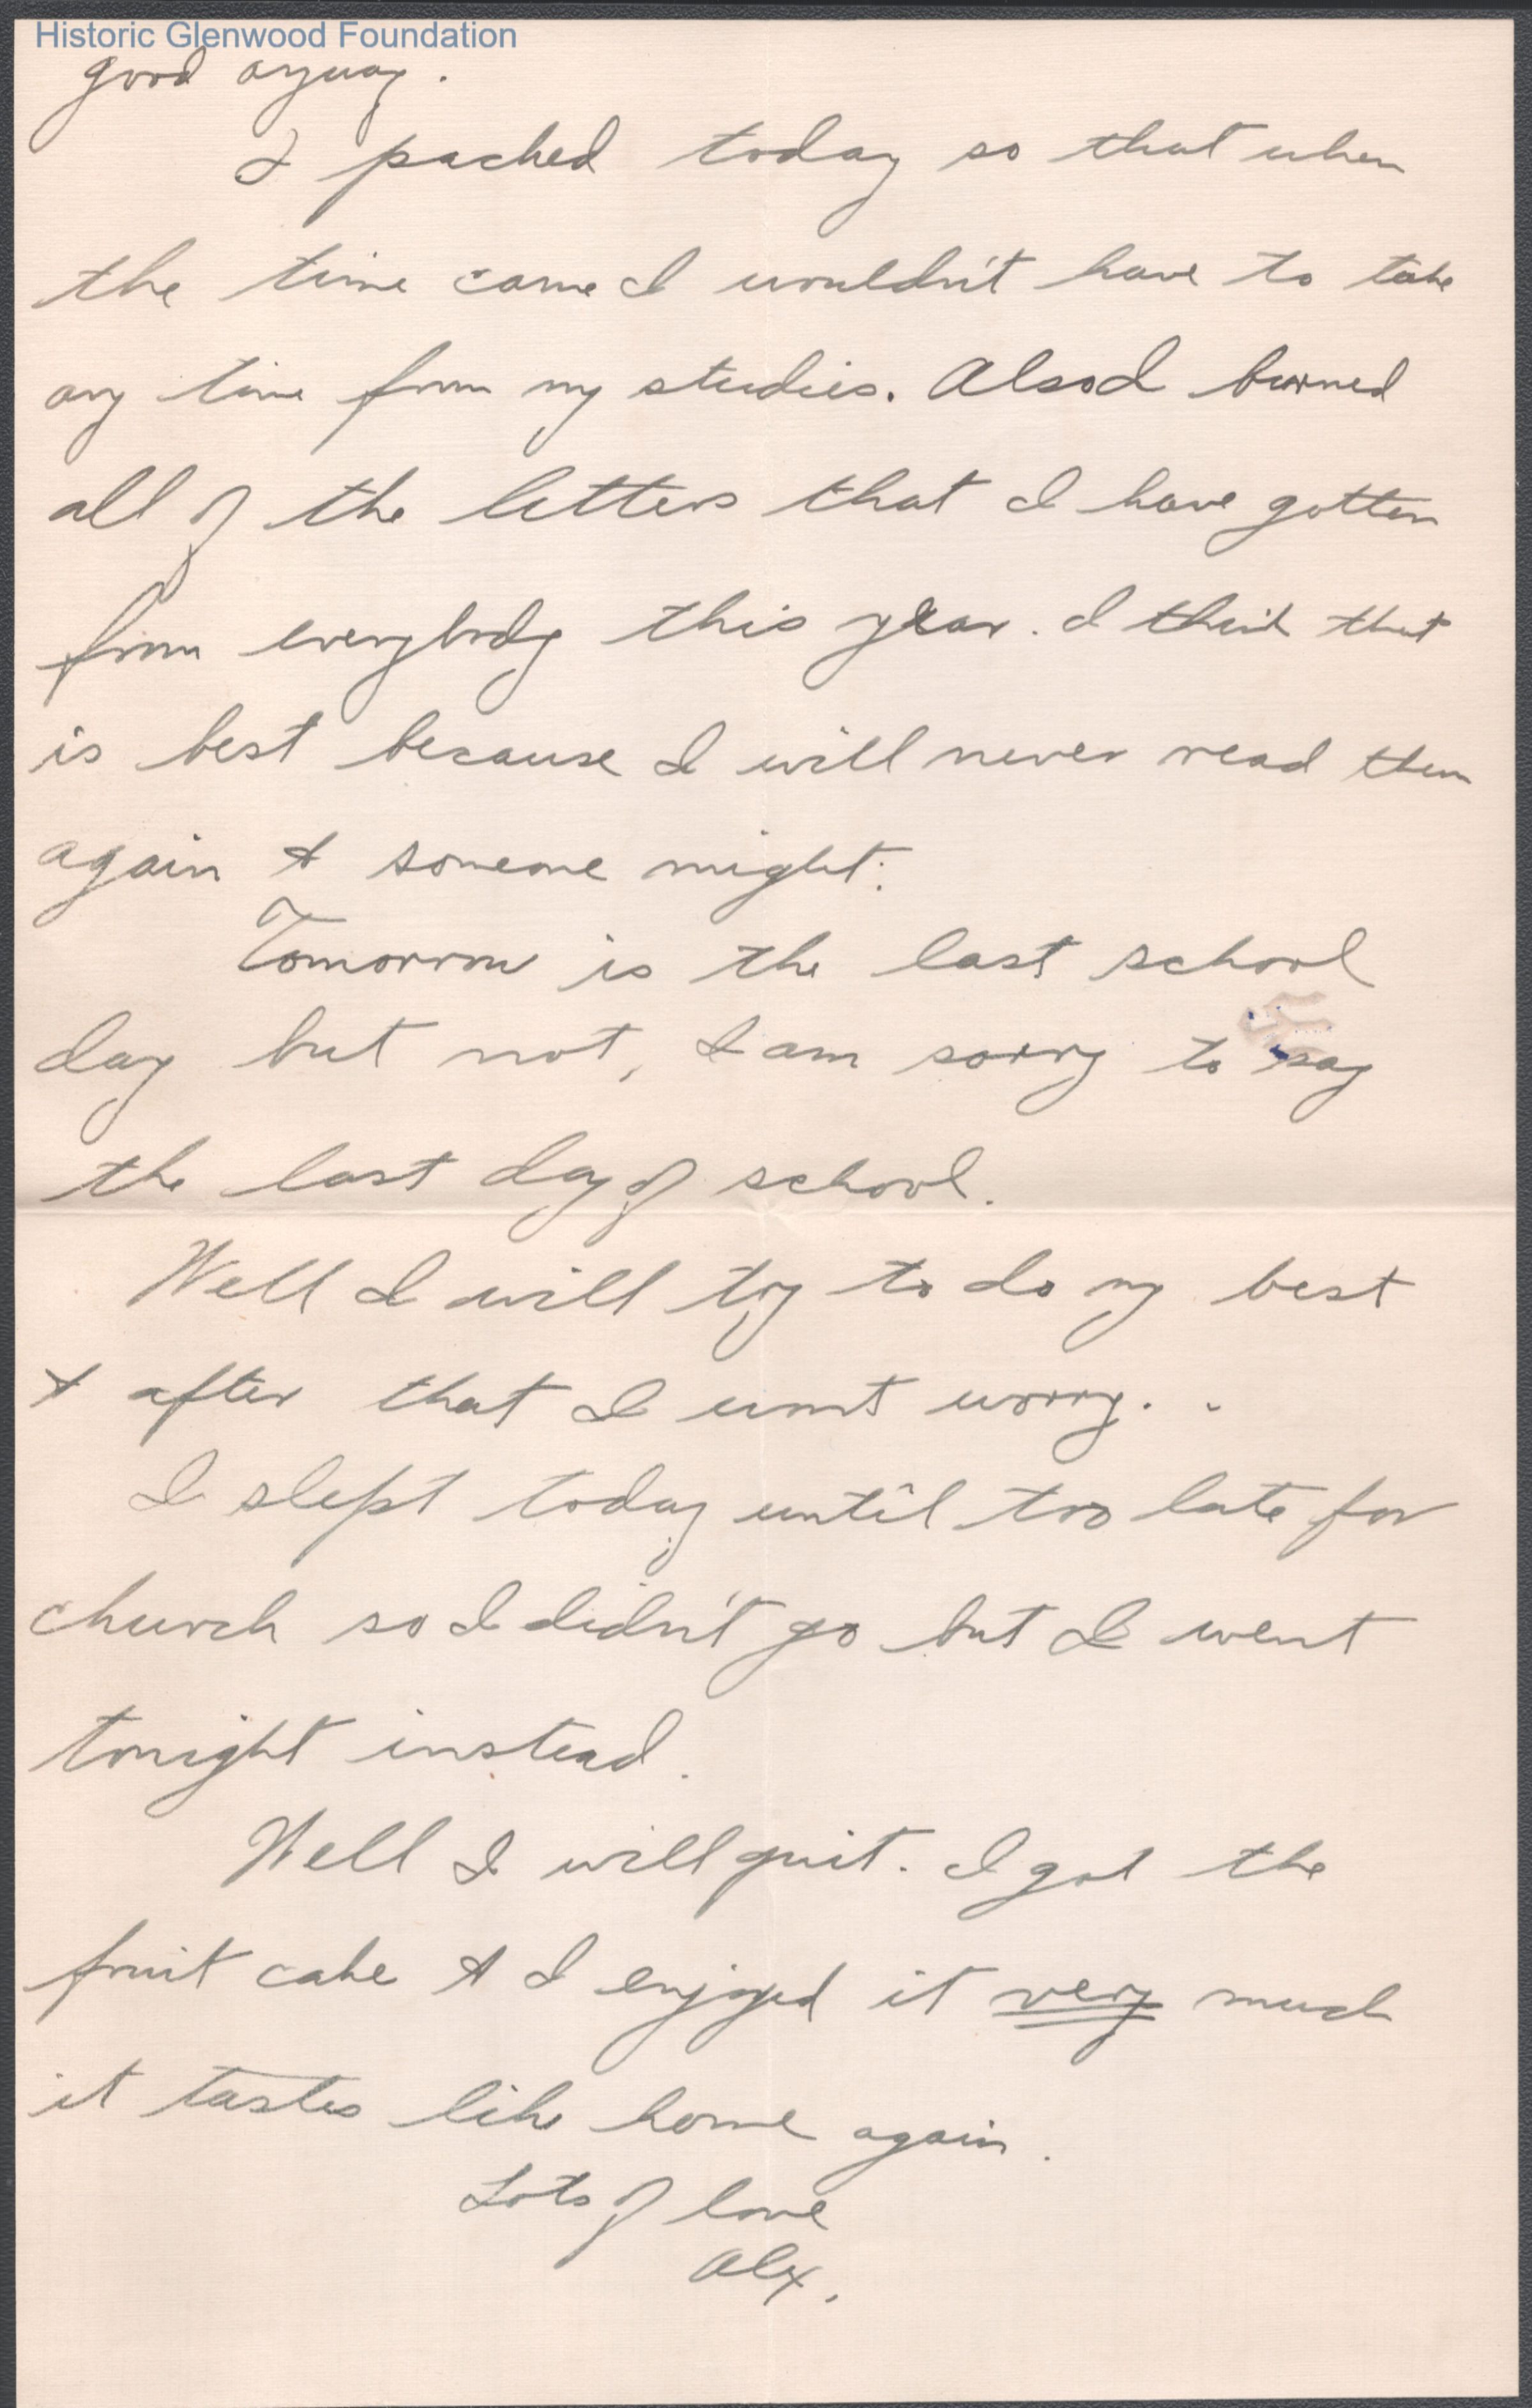 Historic Glenwood Foundation
good anyway.
I packed today so that when
the time came I wouldn't have to take
any time from my studies. Also I burned
all of the letters that I have gotten
from everybody this year. I think that
is best because I will never read them
again & someone might.
Tomorrow is the last school
day but not, I am sorry to say
the last day of school.
Well I will try to do my best
& after that I wont worry. .
I slept today until too late for
church so I didn't go but I went
tonight instead.
Well I will quit. I got the
fruit cake & I enjoyed it very much
it tastes like home again.
Lots of love
Alex.